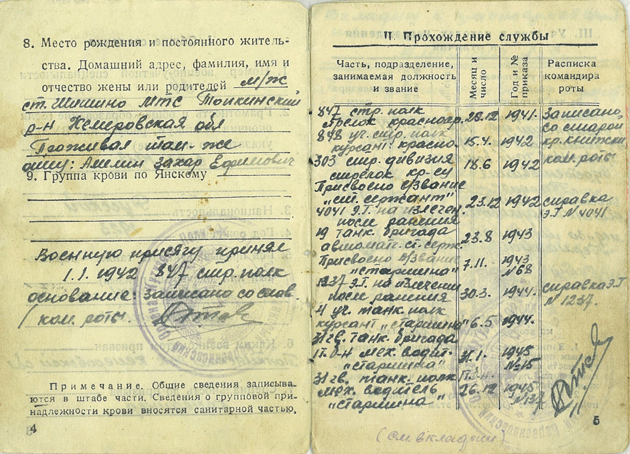 8. Место рождения и постоянного житель-
ства. Домашний адрес, фамилия, имя и
отчество жены или родителей м/ж
ст. Шишино МТС Топкинский
р-н Кемеровская обл
Проживал там-же
Захар Ефимович
9. Группа крови по Янскому
Военную присягу принял
1.1.1942 847 стр. полк
основание: записано со слов
ком. роты.
Примечание. Общие сведения записыва-
ются в штабе части. Сведения о групповой при-
надлежности крови вносятся санитарной частью,
4
II. Прохождение службы
Часть, подразделение, занимаемая должность и звание
Месяц и число
Год и № приказа
Расписка командира роты
847 стр. полк
стрелок красноарм. 28.12 1941. Записано
848 уч. стр. полк со старой
курсант красно. 15.4. 1942 кр. книжки
303 стр. дивизия 18.6 1942 ком. роты
стрелок кр-ец
Присвоено в/звание
"ст. сержант" 23.12 1942 справка
4041 Э.Г. на излечен. Э.Г. N 4041
после ранения
19 танк. бригада 23.8 1943
автомат. ст. серж.
Присвоено в/звание 7.11. 1943
"старшина" N 68
1237 Э.Г. на излечении 30.3. 1944. справка Э.Г.
после ранения N 1237.
4 уч. танк. полк
курсант "старшина" 6.5 1944.
31 гв. танк. бригада
мех. водит. 31.1. 1945
"старшина" N 15
31 гв. танк. полк
мех. водитель 26.12 1945
"старшина" N 137
(см вкладыш)
5